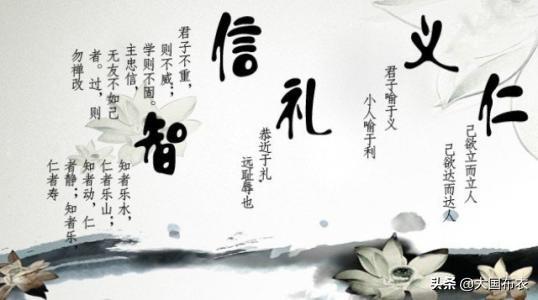 仁
己欲立而立人
己欲达而达人
义
君子喻于义
小人喻于利
礼
恭近于礼
远耻辱也
信
君子不重，
则不威；
学则不固。
主忠信，
无友不如己
者。过，则
勿禅改
智
知者乐水，
仁者乐山；
知者动，仁
者静；知者乐，
仁者寿
头条 @大国布衣